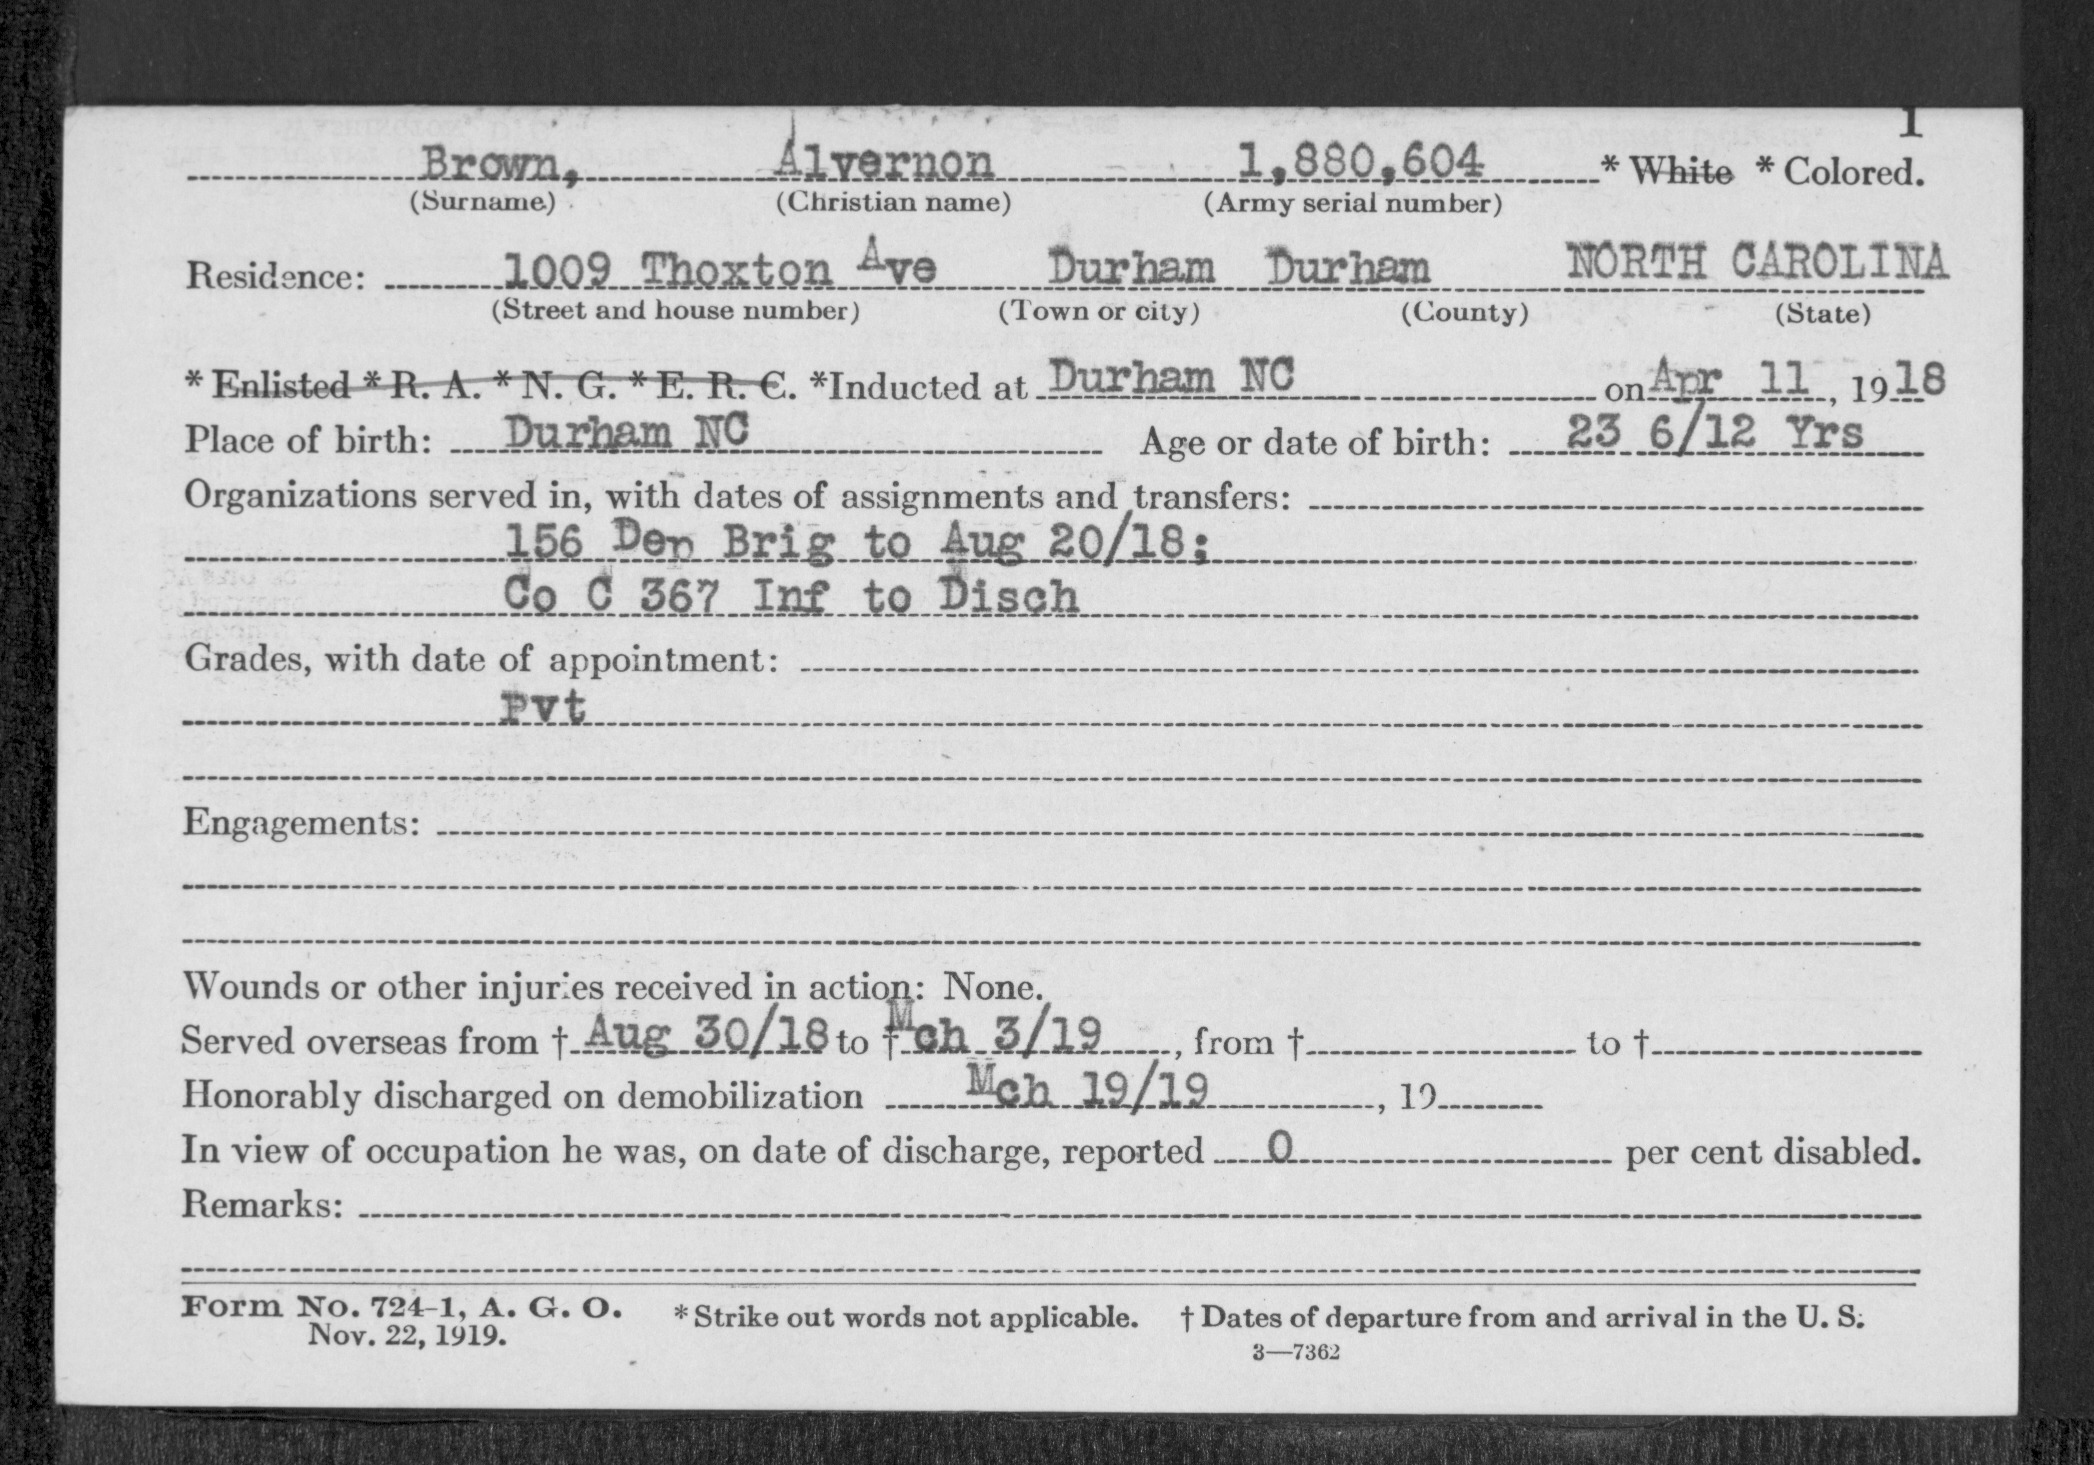 1
Brown, Alvernon 1,880,604 * White * Colored.
(Surname) (Christian name) (Army serial number)
Residence: 1009 Thoxton Ave Durham Durham NORTH CAROLINA
(Street and house number) (Town or city) (County) (State)
* Enlisted * R. A. * N. G. * E. R. C. *Inducted at Durham NC on Apr 11, 1918
Place of birth: Durham NC Age or date of birth: 23 6/12 Yrs
Organizations served in, with dates of assignments and transfers:
156 Dep Brig to Aug 20/18;
Co C 367 Inf to Disch
Grades, with date of appointment:
Pvt
Engagements:
Wounds or other injuries received in action: None.
Served overseas from † Aug 30/18 to † Mch 3/19, from † to †
Honorably discharged on demobilization Mch 19/19, 19
In view of occupation he was, on date of discharge, reported 0 per cent disabled.
Remarks:
Form No. 724-1, A. G. O. * Strike out words not applicable. † Dates of departure from and arrival in the U. S.
Nov. 22, 1919.
3—7362